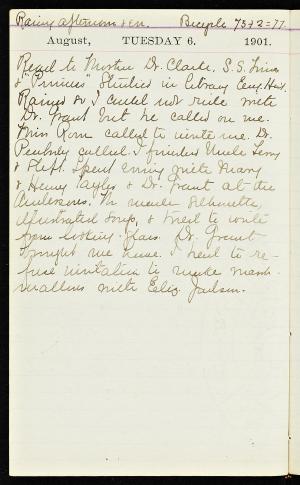 Rainy afternoon & eve. Bicycle 75+2=77
August, TUESDAY 6. 1901.
Read to Mother Dr. Clarke. S.S. Times
"Princess" Studied in Library
Rained so I could not ride with
Dr. Grant but he called on me.
Miss Rom called to invite me. Dr.
Peabody called. I finished Uncle Terry
& slept. Spent evening with Mary
& Henry Taylor & Dr. Grant at the
Andersons. We made silhouettes,
illustrated songs, & tried to write
from looking-glass. Dr. Grant
brought me home. I had to re-
fuse invitation to make marsh-
mallows with Eliz. Judson.